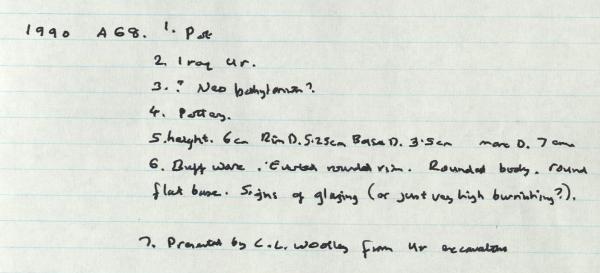 1990 A68. 1. Pot
2. Iraq Ur.
3. ? Neo babylonian?.
4. Pottery.
5. height. 6cm Rim D. 5.25cm Base D. 3.5cm max D. 7cms
6. Buff ware. Everted rounded rim. Rounded body. round
flat base. Signs of glazing (or just very high burnishing?).
7. Presented by C.L. Woolley from Ur excavations